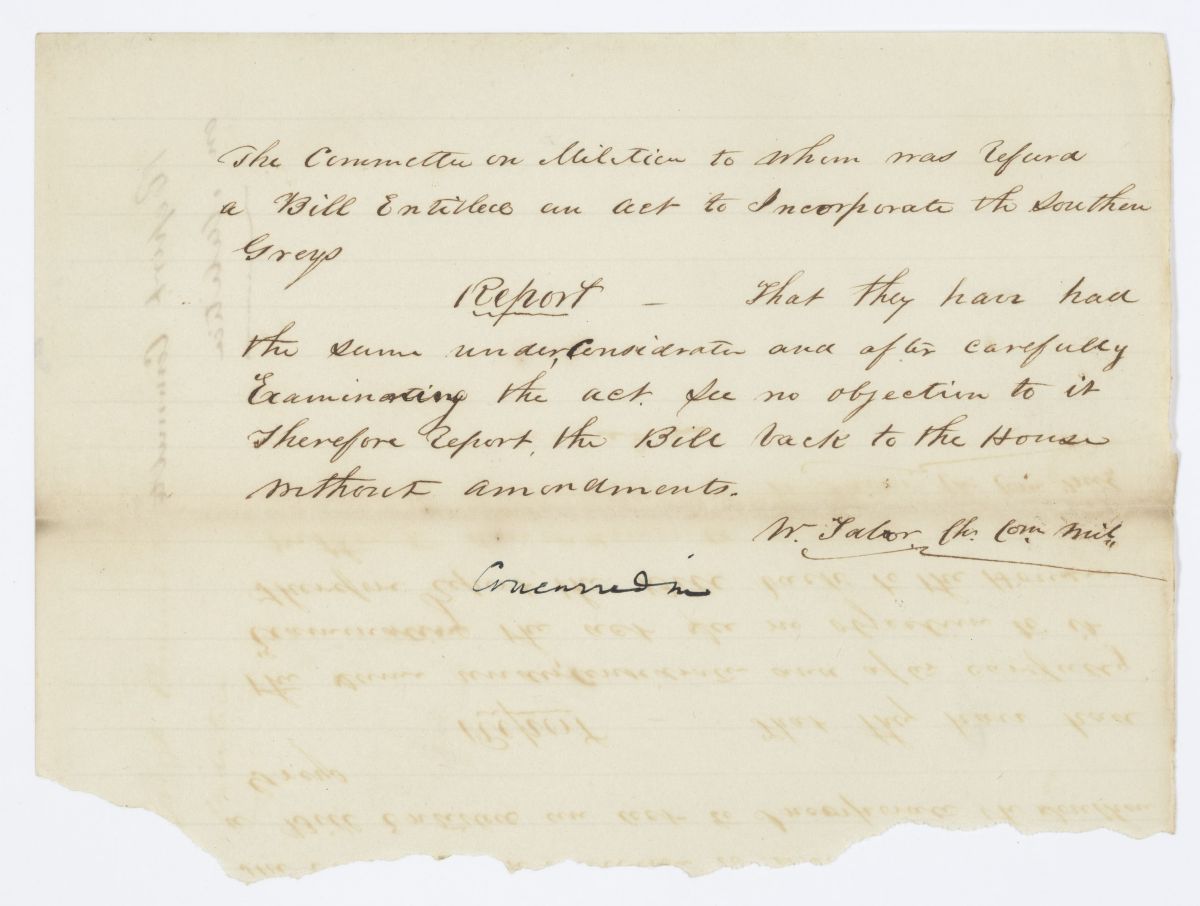 The Committee on Militia to whom was refured
a Bill Entitled an act to Incorporate the Southern
Greys
Report – That they have had
the same under, Considiration and after carefully
Examinating the act. See no objection to it
Therefore Report, the Bill back to the House
without amondments.
W. Tabor Ch. Com Mil
Concurred in